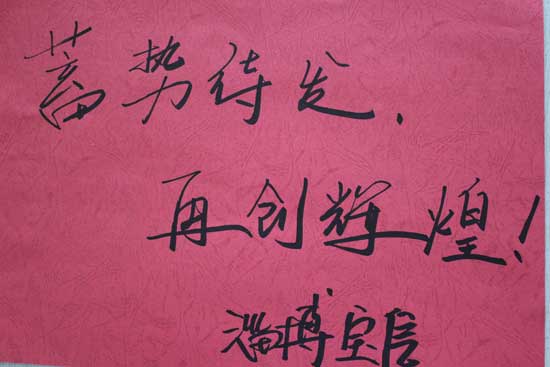 蓄势待发,
再创辉煌!
淄博宝信